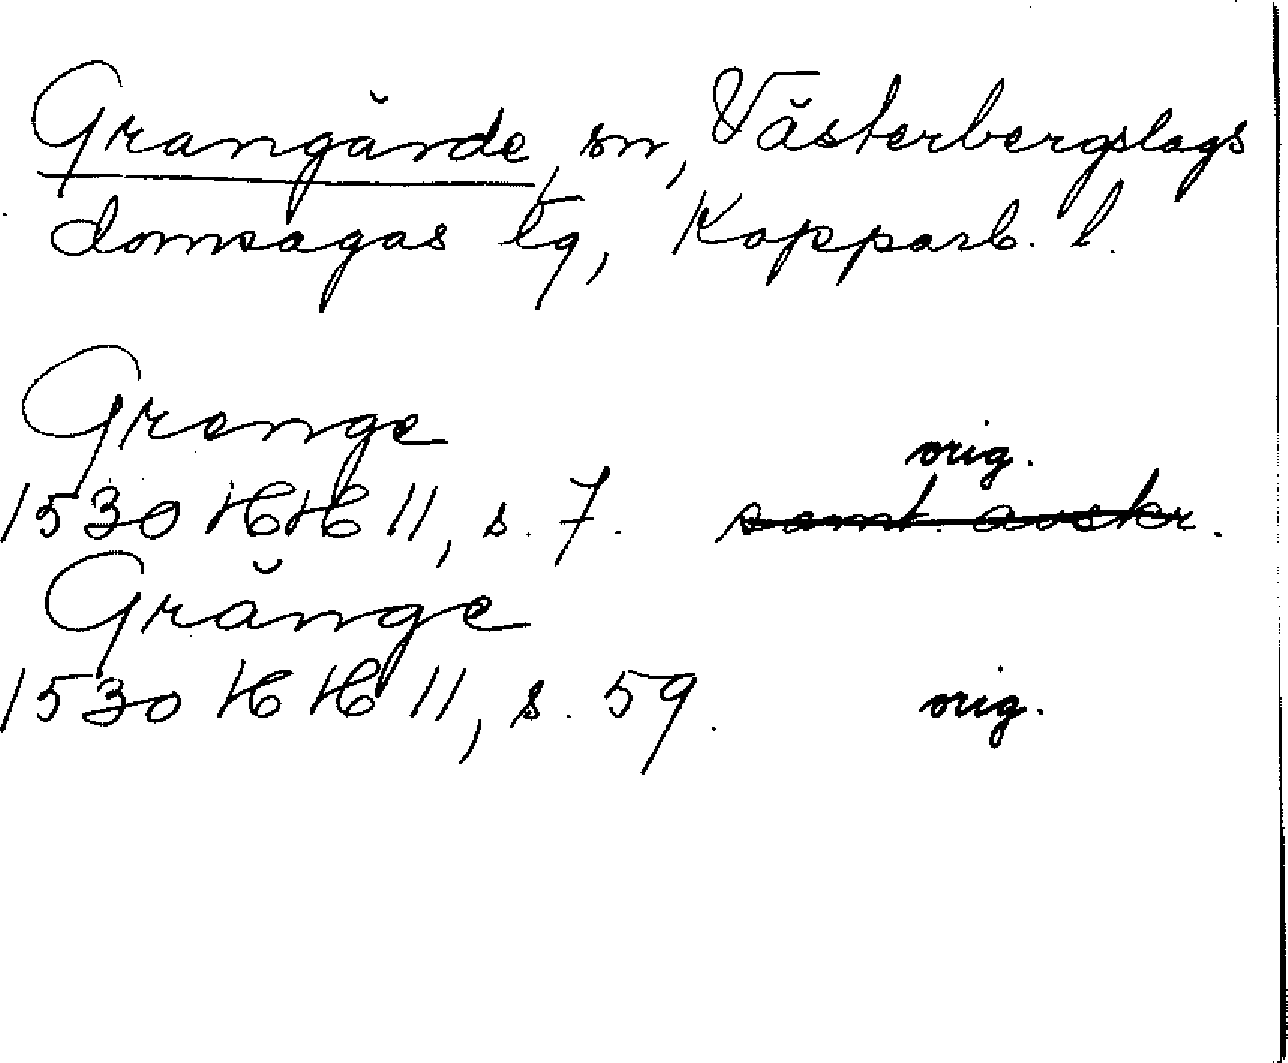 Grangärde, sn, Västerbergslags
domsagas tg, Kopparb. l.
Grenge
orig.
1530 HH 11, s. 7. samt. avskr.
Gränge
1530 HH 11, s. 59. orig.